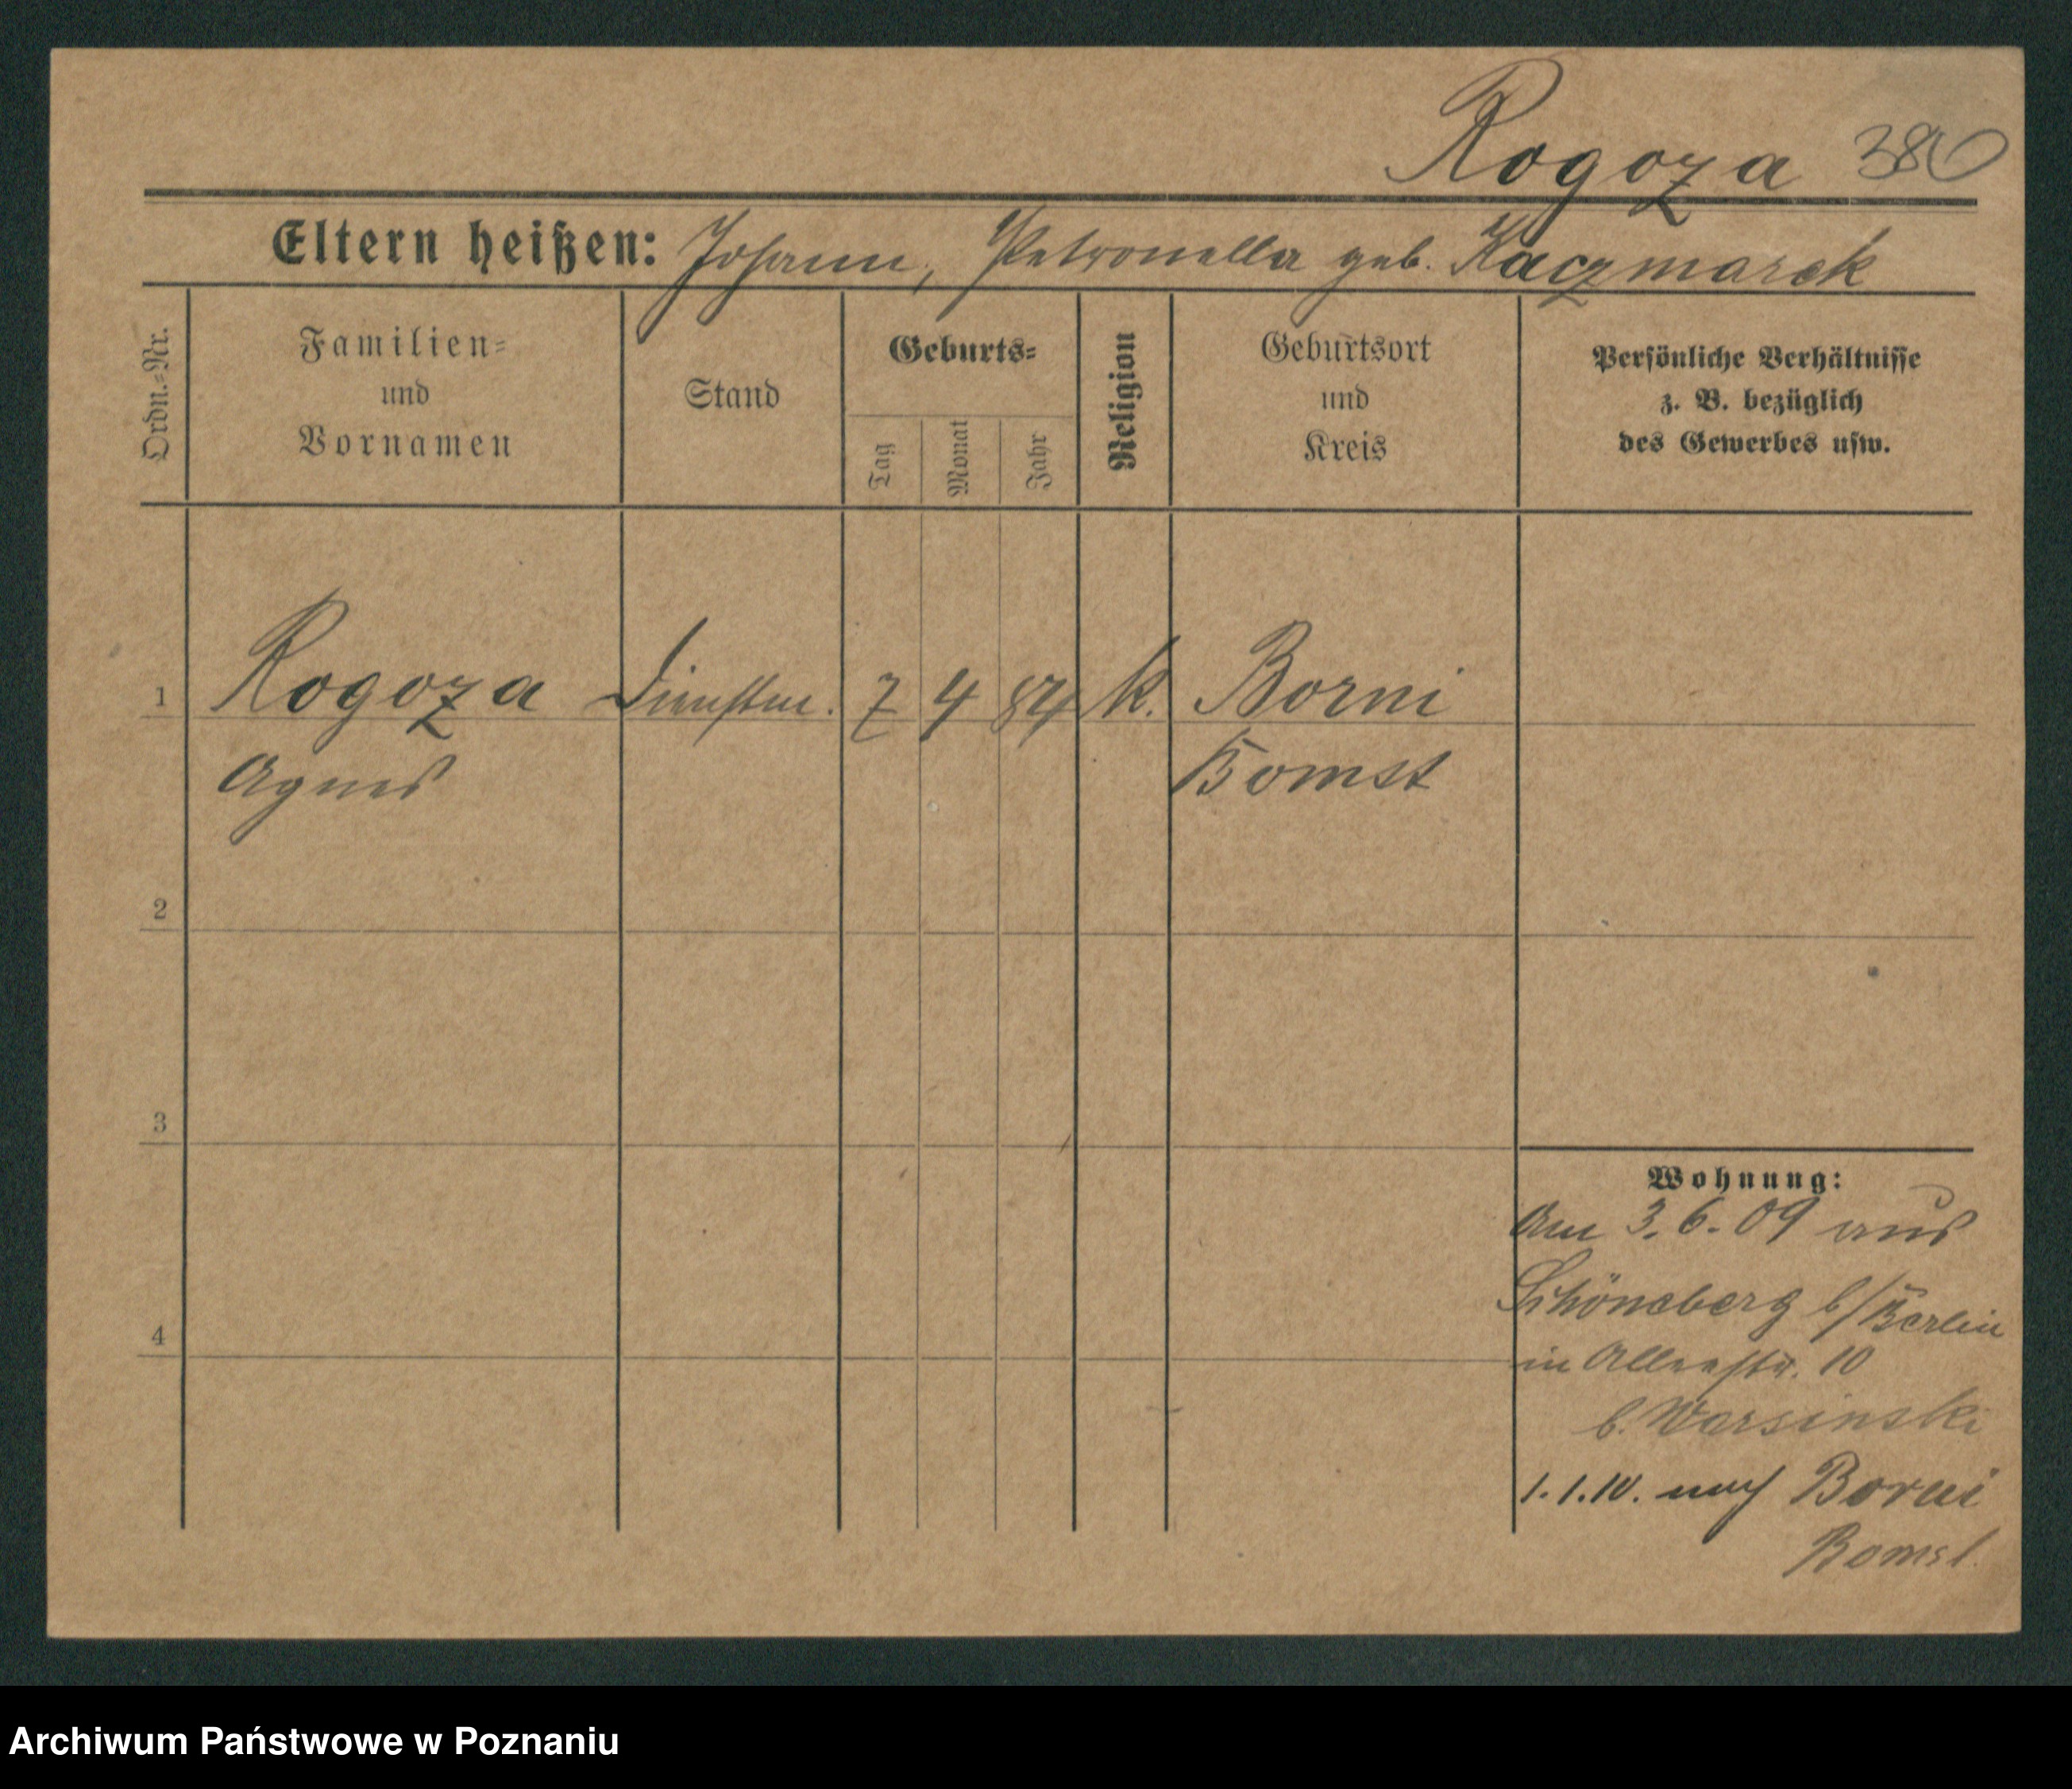 Rogoza 380
Eltern heißen: Johann, Petronella geb. Kaczmarek
Ordn.-Nr.
Familien-
und
Vornamen
Stand
Geburts-
Tag
Monat
Jahr
Religion
Geburtsort
und
Kreis
Persönliche Verhältnisse
z. B. bezüglich
des Gewerbes usw.
1 Rogoza Dienstm. 7 4 84 k. Borni
Agnes Bomst
2
3
4
Wohnung:
Am 3.6.09 aus
Schöneberg b/Berlin
in 10
b. Warsinski
1.1.10. nach Borui
Bomst.
Archiwum Państwowe w Poznaniu